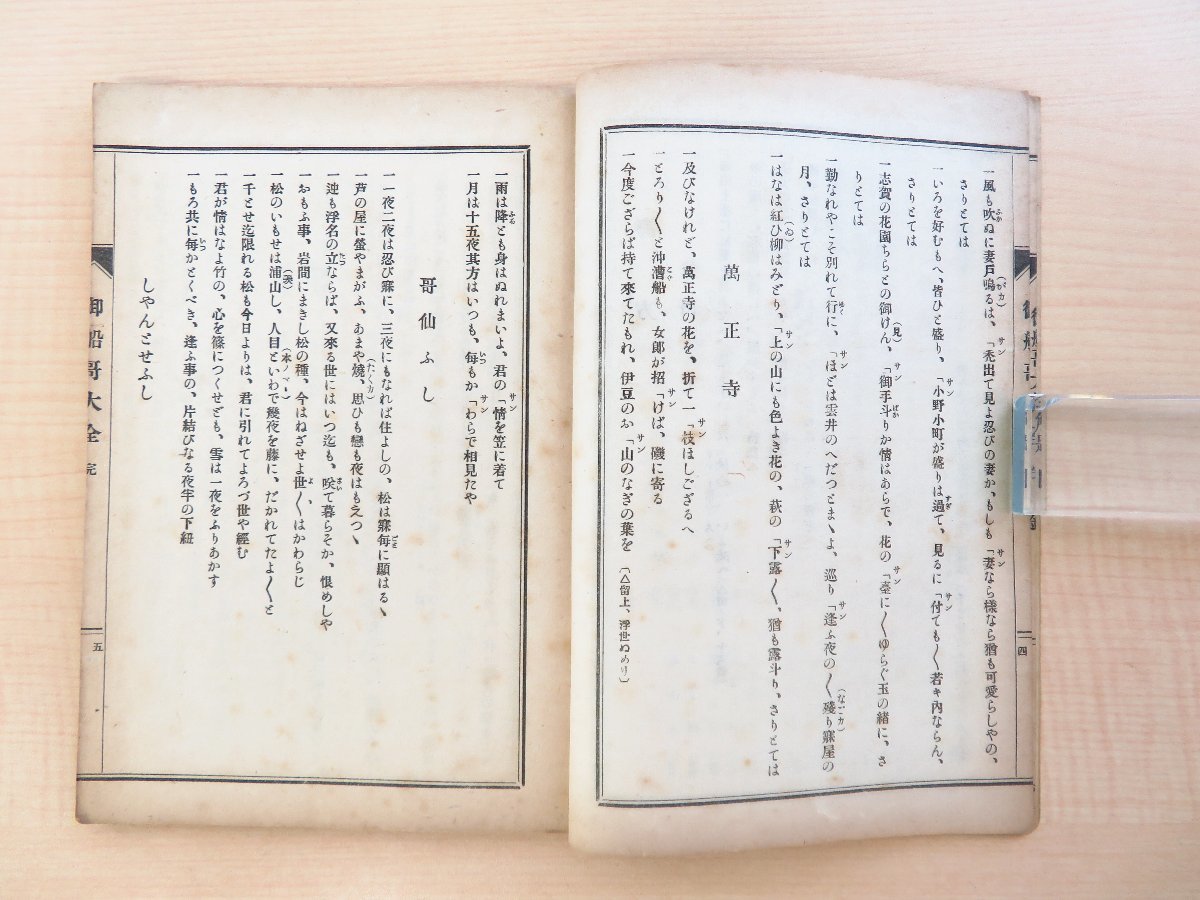 一風も吹ぬに妻戸鳴るは、「禿出て見よ忍びの妻か、もしも「妻なら様なら猶も可愛らしやの、
さりとては
一いろを好むもへ、皆ひと盛り、「小野小町が盛りは過て、見るに「付ても〱若キ內ならん、
さりとては
一志賀の花園ちらとの御けん、「御手斗りか情はあらで、花の「臺に〱ゆらぐ玉の緒に、さ
りとては
一勤なれやこそ別れて行に、「ほどは雲井のへだつとまゝよ、巡り「逢ふ夜の〱殘り寐屋の
月、さりとては
一はなは紅ひ柳はみどり、「上の山にも色よき花の、萩の「下露〱、猶も露斗り、さりとては
萬正寺
一及びなけれど、萬正寺の花を、折て一「枝ほしござるへ
一とろり〱と沖漕船も、女郎が招「けば、磯に寄る
一今度ござらば持て來てたもれ、伊豆のお「山のなぎの葉を（△留上、浮世ぬめり）
四
一雨は降とも身はぬれまいよ、君の「情を笠に着て
一月は十五夜其方はいつも、每もか「わらで相見たや
哥仙ふし
一一夜二夜は忍び寐に、三夜にもなれば住よしの、松は寐每に顯はるゝ
一芦の屋に螢やまがふ、あまや燒、思ひも戀も夜はもえつゝ
一迚も浮名の立ならば、又來る世にはいつ迄も、咲て暮らそか、恨めしや
一おもふ事、岩間にまきし松の種、今はねざせよ世〱はかわらじ
一松のいもせは浦山し、人目といわで幾夜を藤に、だかれてたよ〱と
一千とせ迄限れる松も今日よりは、君に引れてよろづ世や經む
一君が情はなよ竹の、心を篠につくせども、雪は一夜をふりあかす
一もろ共に每かとくべき、逢ふ事の、片結びなる夜牢の下紐
しやんとせふし
御船哥大全 完
五